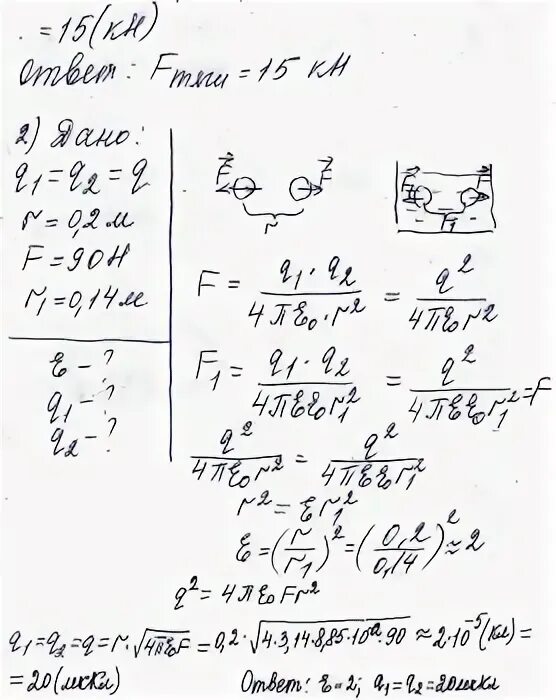 . = 15 (кН)
Ответ: Fтяги = 15 кН
2) Дано:
q₁ = q₂ = q
r = 0,2 м
F = 90 Н
r₁ = 0,14 м
ε - ?
q₁ - ?
q₂ - ?
F F r
F F r₁
F = q₁ · q₂ / 4πε₀ · r² = q² / 4πε₀r²
F₁ = q₁ · q₂ / 4πεε₀r₁² = q² / 4πεε₀r₁² = F
q² / 4πε₀r² = q² / 4πεε₀r₁²
r² = εr₁²
ε = (r / r₁)² = (0,2 / 0,14)² ≈ 2
q² = 4πε₀Fr²
q₁ = q₂ = q = r · √4πε₀F = 0,2 · √4·3,14·8,85·10 · 90 ≈ 2·10⁻⁵ (Кл) =
= 20 (мкКл) Ответ: ε = 2; q₁ = q₂ = 20 мкКл